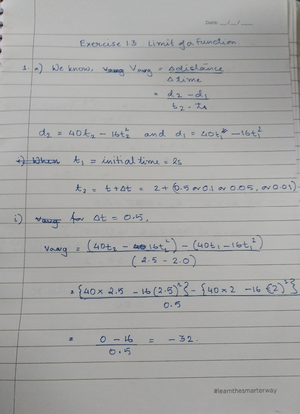 Date: __/__/__
Exercise 1.3 Limit of a Function.
1. a) We know, Vavg = Δdistance / Δtime
= d₂ - d₁ / t₂ - t₁
d₂ = 40t₂ - 16t₂² and d₁ = 40t₁ - 16t₁²
t₁ = initial time = 2s
t₂ = t + Δt = 2 + (0.5 or 0.1 or 0.05, or 0.01)
i) for Δt = 0.5,
Vavg = (40t₂ - 16t₂²) - (40t₁ - 16t₁²) / (2.5 - 2.0)
= {40 × 2.5 - 16(2.5)²} - {40 × 2 - 16 (2)²} / 0.5
= 0 - 16 / 0.5 = -32.
#learnthesmarterway